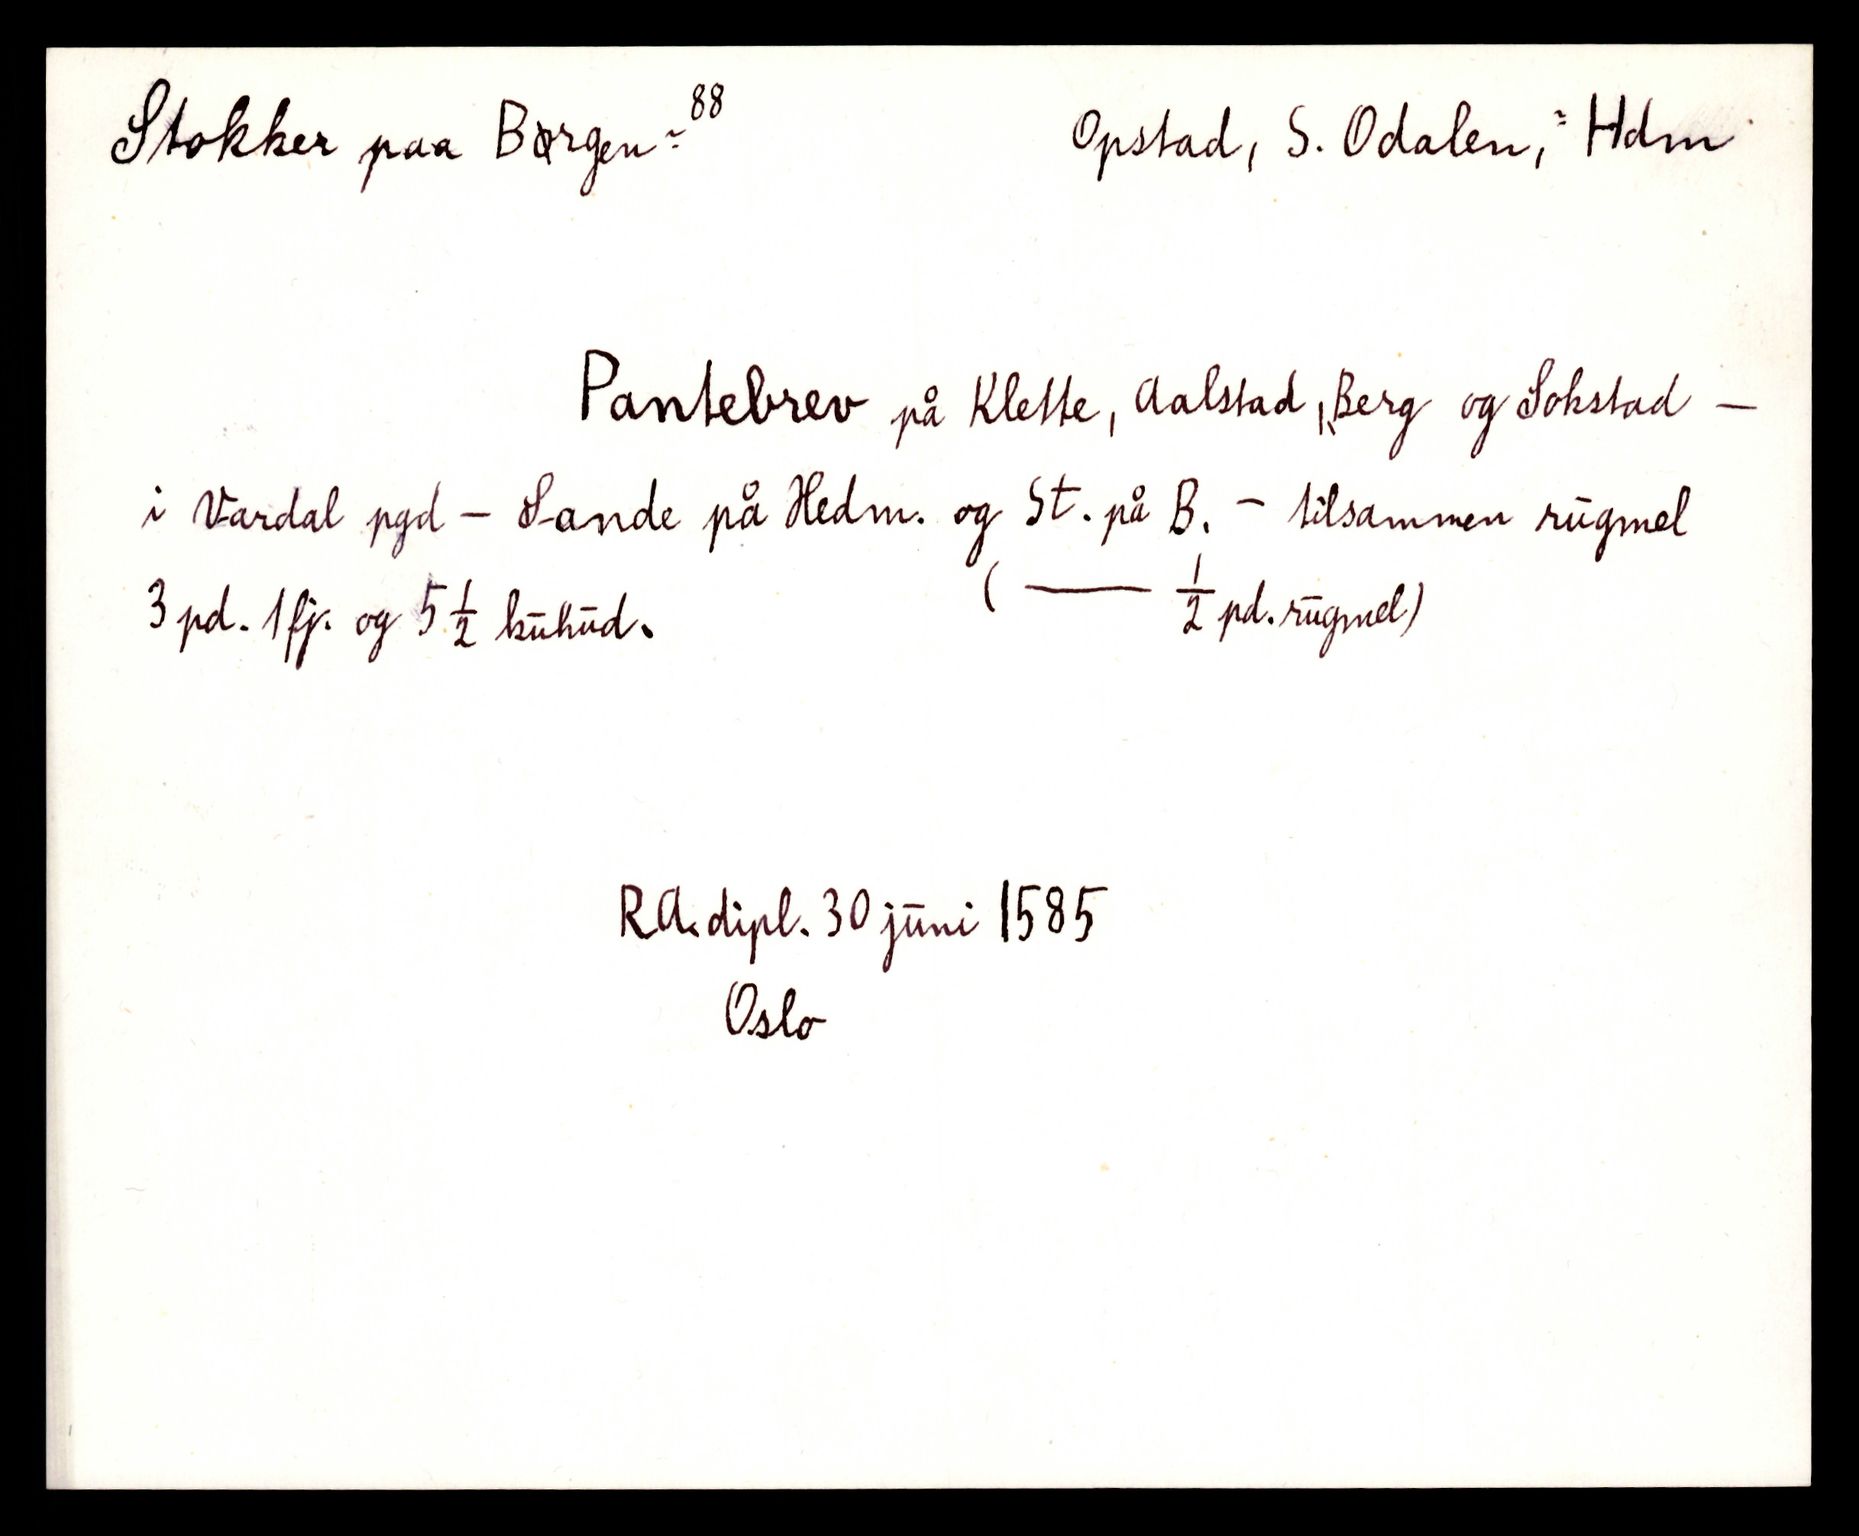 Stokker paa Børgen ~ 88 Opstad, S. Odalen, = Hdm
Pantebrev på Klette, Aalstad, Berg og Sokstad —
i Vardal pgd — Sande på Hedm. og St. på B. — tilsammen rūgmel
3 pd. 1 fj. og 5 ½ kūhūd. ( —— ½ pd. rūgmel)
R.A. dipl. 30 jūni 1585
Oslo